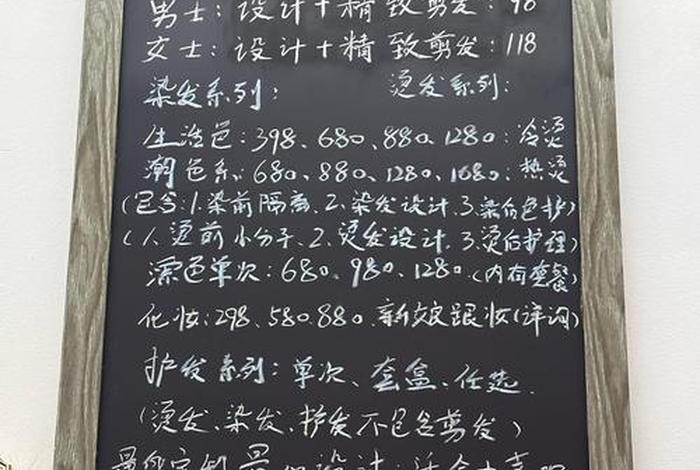 男士：设计+精致剪发：98
女士：设计+精致剪发：118
染发系列： 烫发系列：
生活色：398、680、880、1280：冷烫
潮色系：680、880、1280、1680：热烫
(包含：1.染前隔离、2.染发设计、3.染后色护)
(1.烫前小分子、2.烫发设计、3.烫后护理)
漂色单次：680、980、1280、(内有套餐)
化妆：298、580.880、新娘跟妆(详询)
护发系列：单次、套盒、任选.
(烫发、染发、护发不包含剪发)